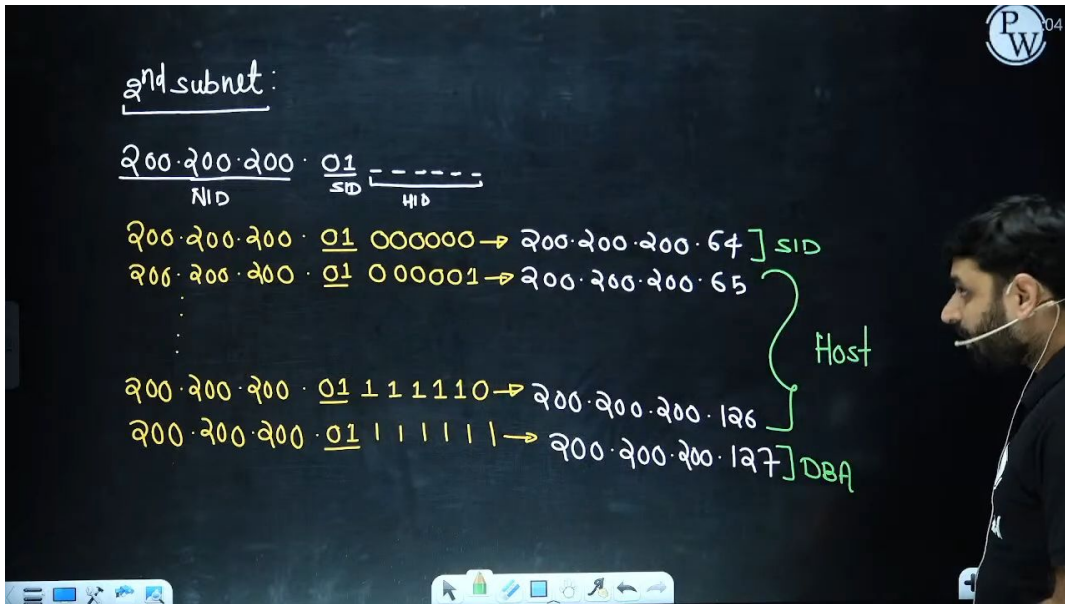 PW
:04
2nd subnet:
200.200.200. 01 _ _ _ _ _ _
NID SID HID
200.200.200. 01 000000→ 200.200.200.64 ] SID
200.200.200. 01 000001→ 200.200.200.65
Host
200.200.200. 01 111110→ 200.200.200.126
200.200.200. 01 111111→ 200.200.200.127] DBA